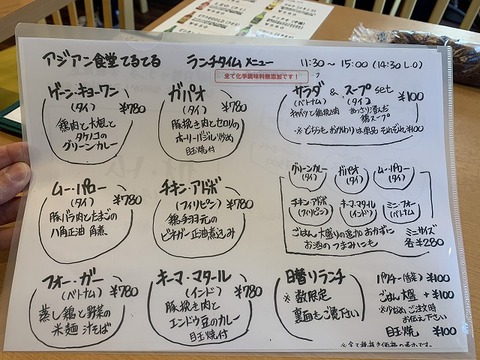 アジアン食堂てるてる ランチタイム メニュー 11:30 〜 15:00 (14:30 L.O)
全て化学調味料無添加です!
ゲーン・キョーワン
(タイ) ¥780
鶏肉と大根と
タケノコの
グリーンカレー
ガパオ
(タイ) ¥780
豚挽き肉とセロリの
ホーリーバジル炒め
目玉焼付
サラダ & スープ set
(ベトナム) (タイ) ¥100
あっさり澄んだ
鶏スープ
ムー・パロー
(タイ) ¥780
豚バラ肉とたまごの
八角正油 角煮
チキン・アドボ
(フィリピン) ¥780
鶏手羽元の
ビネガー正油煮込み
グリーンカレー
(タイ)
ガパオ
(タイ)
ムー・パロー
(タイ)
チキン・アドボ
(フィリピン)
キーマ・マタール
(インド)
ミニ・フォー
(ベトナム)
ごはん大盛りの追加おかずに
お酒のつまみにも
ミニサイズ
各¥280
フォー・ガー
(ベトナム) ¥780
蒸し鶏と野菜の
米麺 汁そば
キーマ・マタール
(インド) ¥780
豚挽き肉と
エンドウ豆のカレー
目玉焼付
日替りランチ
※ 数限定
裏面もご覧下さい
パクチー(香菜) ¥100
ごはん大盛 + ¥100
※少なめ ご注文時
お伝え下さい
目玉焼 ¥100
※全て税抜き価格の表示です。